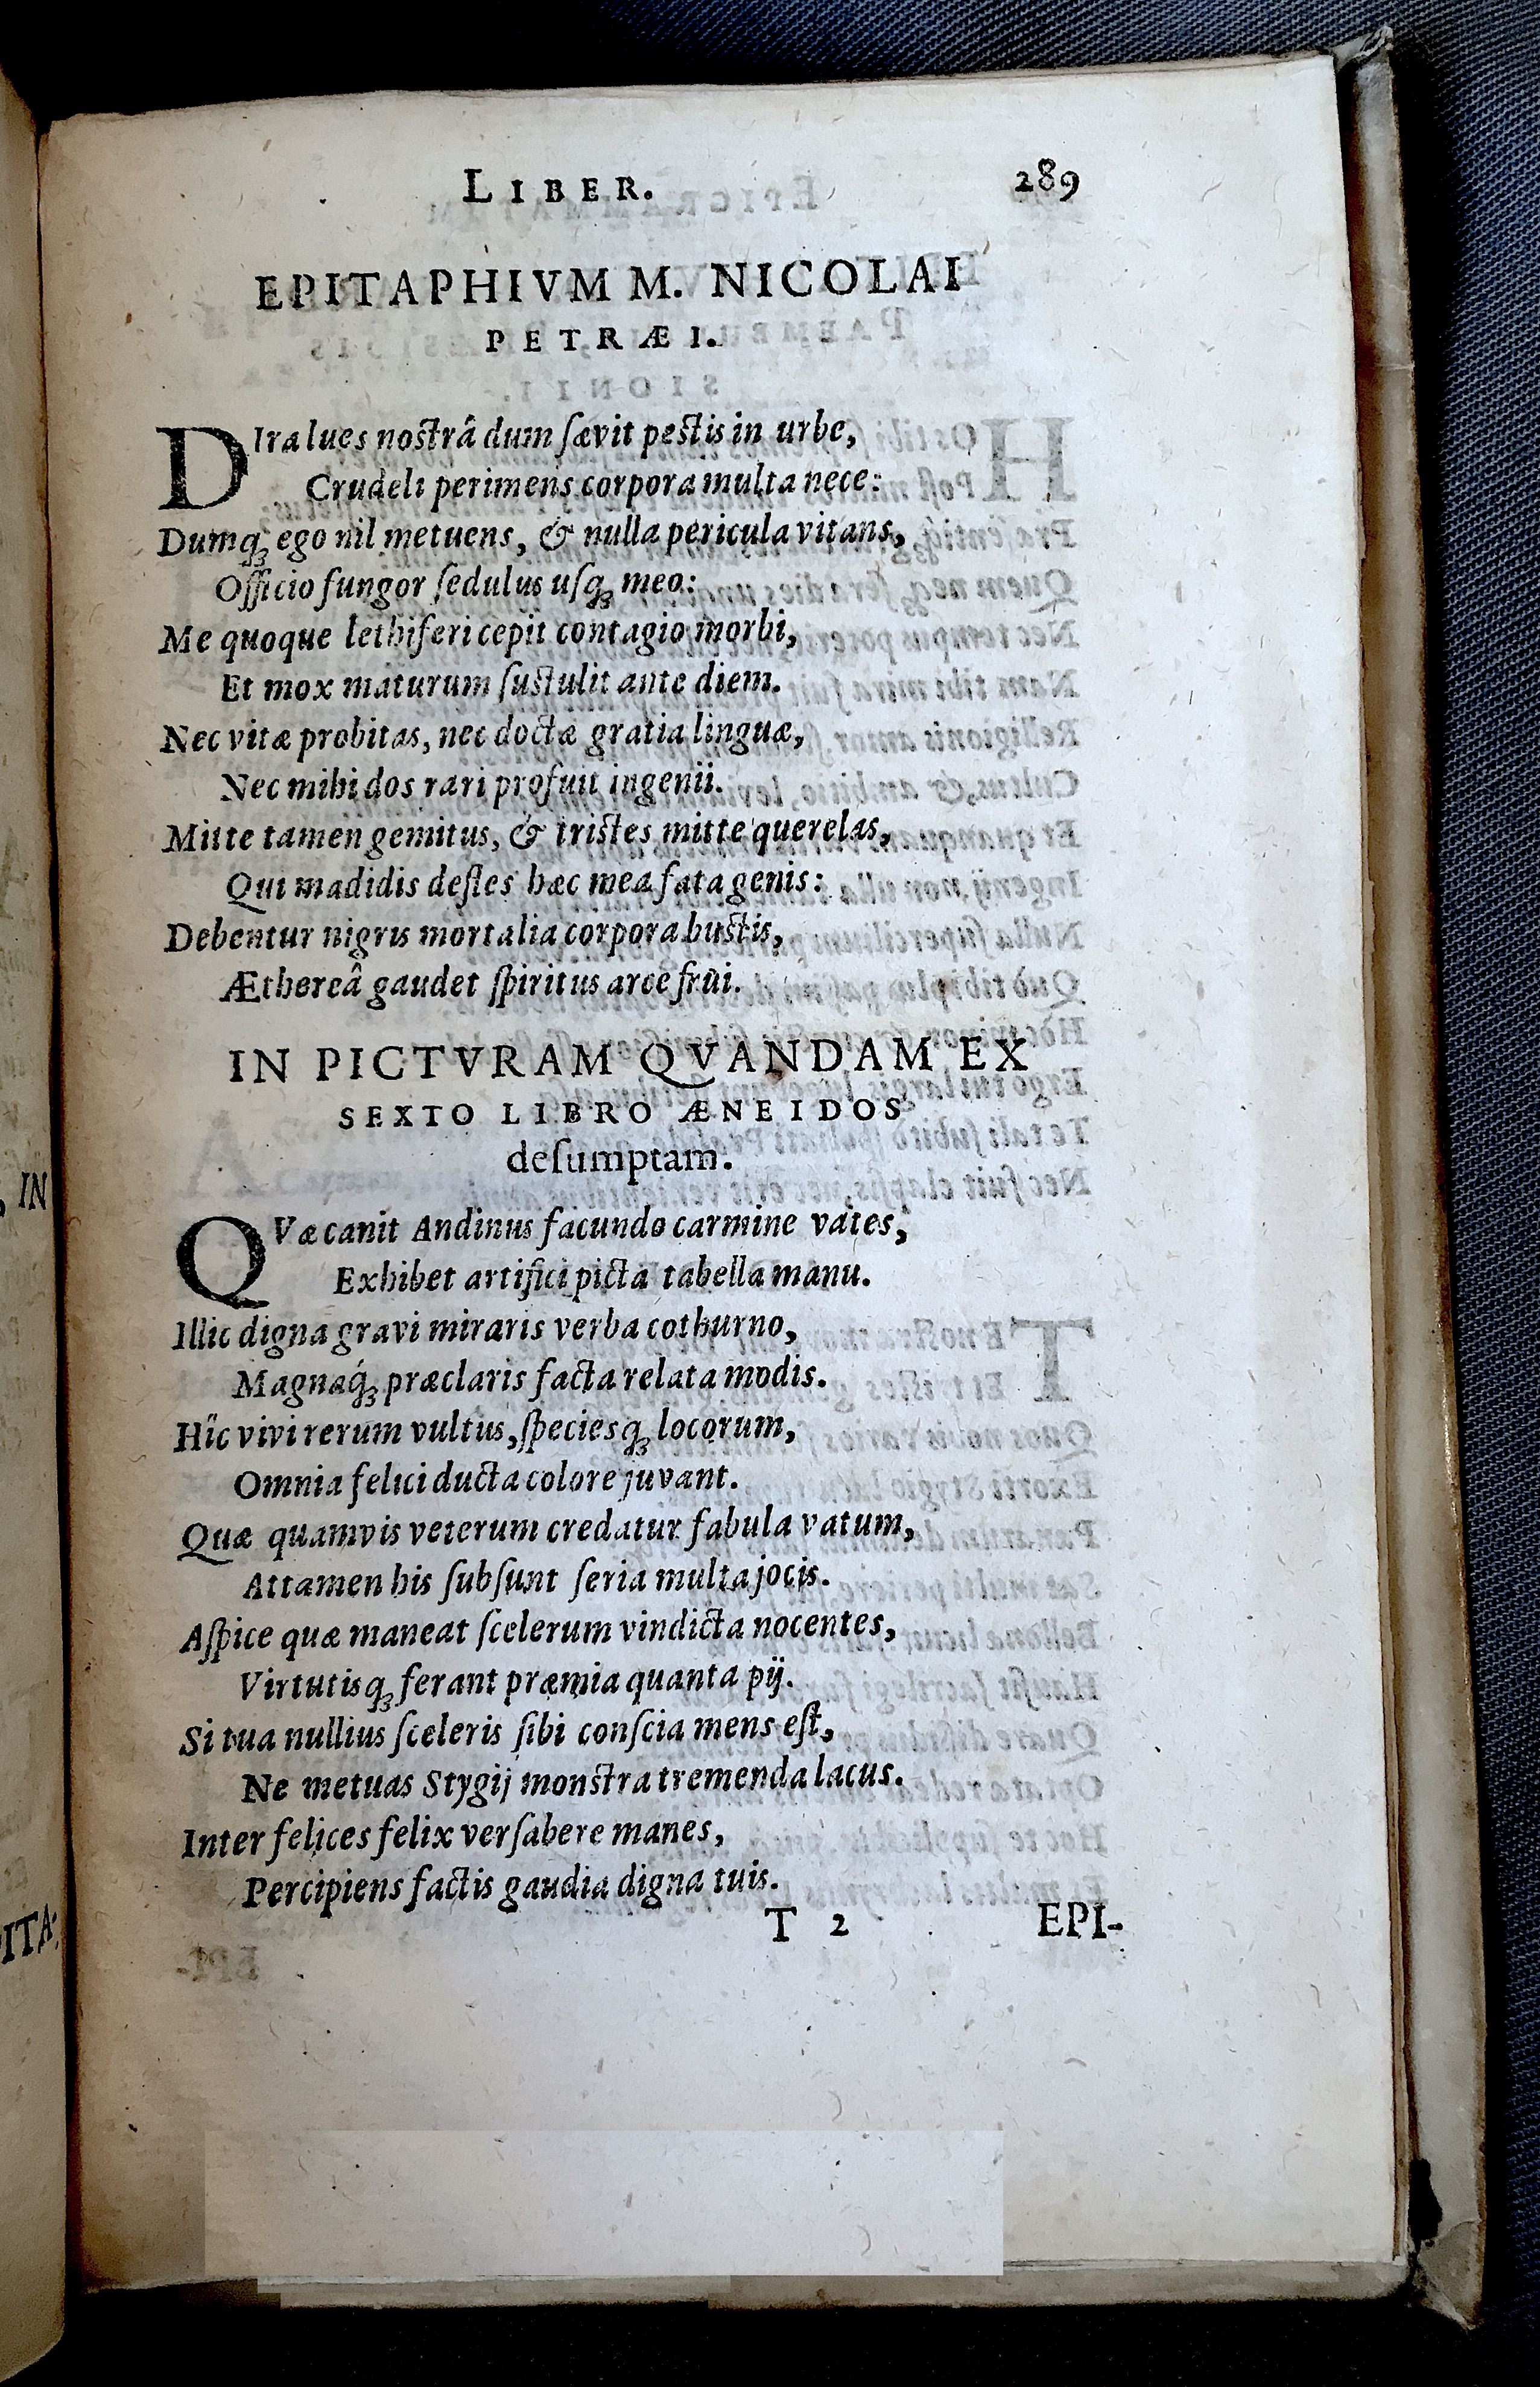 LIBER. 289
EPITAPHIVM M. NICOLAI
PETRÆI.
DIra lues nostrâ dum ſævit pestis in urbe,
Crudeli perimens corpora multa nece:
Dumq́ꝫ ego nil metuens, & nulla pericula vitans,
Officio fungor ſedulus uſqꝫ meo:
Me quoque lethiferi cepit contagio morbi,
Et mox maturum ſustulit ante diem.
Nec vitæ probitas, nec doctæ gratia linguæ,
Nec mihi dos rari profuit ingenii.
Mitte tamen gemitus, & tristes mitte querelas,
Qui madidis defles hæc mea fata genis:
Debentur nigris mortalia corpora bustis,
Æthereâ gaudet ſpiritus arce frui.
IN PICTVRAM QVANDAM EX
SEXTO LIBRO ÆNEIDOS
deſumptam.
QVæ canit Andinus facundo carmine vates,
Exhibet artifici picta tabella manu.
Illic digna gravi miraris verba cothurno,
Magnaq́ꝫ præclaris facta relata modis.
Hîc vivi rerum vultus, ſpeciesqꝫ locorum,
Omnia felici ducta colore juvant.
Quæ quamvis veterum credatur fabula vatum,
Attamen his ſubſunt ſeria multa jocis.
Aſpice quæ maneat ſcelerum vindicta nocentes,
Virtutisqꝫ ferant præmia quanta pij.
Si tua nullius ſceleris ſibi conſcia mens eſt,
Ne metuas Stygij monstra tremenda lacus.
Inter felices felix verſabere manes,
Percipiens factis gaudia digna tuis.
T 2 EPI-
IN
PITA: